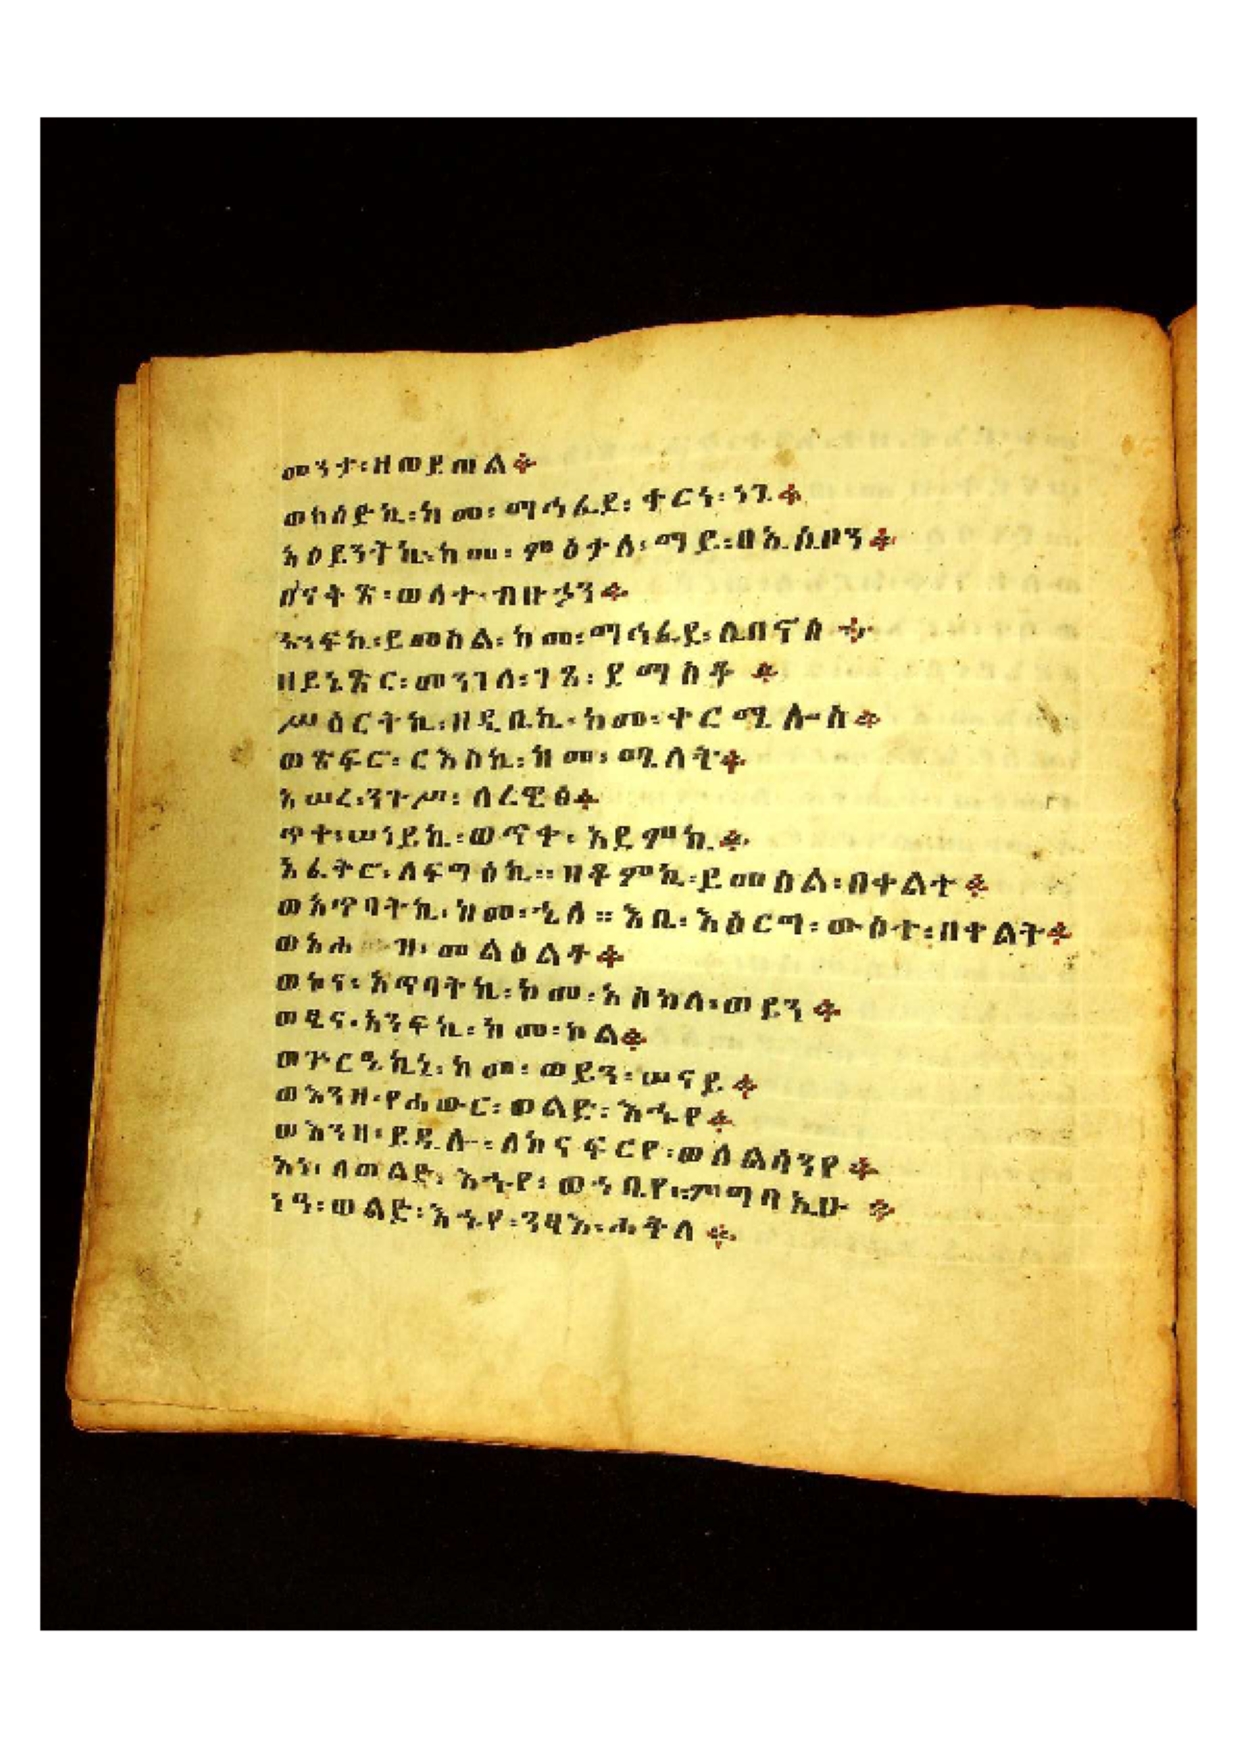 መንታ፡ዘወይጠል፨
ወክሳድኪ፡ከመ፡ማኅፈደ፡ቀርነ፡ነጌ፨
አዕይንትኪ፡ከመ፡ምዕታለ፡ማይ፡በኢሲቦን፨
በናቅጽ፡ወለተ፡ብዙኃን፨
አንፍኪ፡ይመስል፡ከመ፡ማኅፈደ፡ሊባኖስ፨
ዘይኔጽር፡መንገለ፡ገጸ፡ደማስቆ፨
ሥዕርትኪ፡ዘዲቤኪ፡ከመ፡ቀርሜሎስ፨
ወጽፍሮ፡ርእስኪ፡ከመ፡ሜላት፨
አሠረ፡ንጉሥ፡ለረዊፅ፨
ጥቀ፡ሠነይኪ፡ወጥቀ፡አደምኪ፨
አፈቅሮ፡ለፍግዕኪ። ዘቆምኪ፡ይመስል፡በቀልተ፨
ወአጥባትኪ፡ከመ፡ኄለ። እቤ፡እዕርግ፡ውስተ፡በቀልት፨
መልዕልቶ፨
ወኮና፡አጥባትኪ፡ከመ፡አስካለ፡ወይን፨
ወፄና፡አንፍኪ፡ከመ፡ኮል፨
ወጕርዔኪኒ፡ከመ፡ወይን፡ሠናይ፨
ወእንዘ፡የሐውር፡ወልድ፡እኁየ፨
ወእንዘ፡ይዴሉ፡ለከናፍርየ፡ወለልሳንየ፨
አነ፡ለወልድ፡እኁየ፡ወኀቤየ፡ምግባኢሁ፨
ነዓ፡ወልድ፡እኁየ፡ንፃእ፡ሐቅለ፨